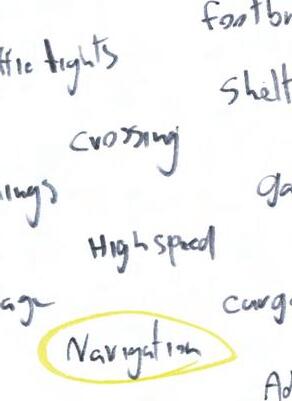 footbr
ffic lights
shelt
crossing
ings
ga
High speed
age
carg
Navigation
Ad